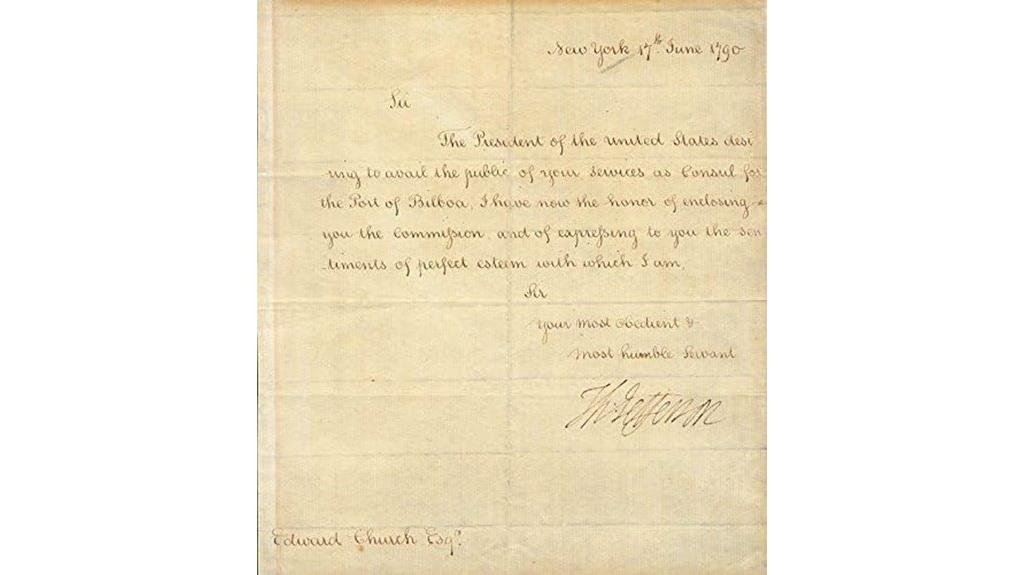 New York 17th June 1790
Sir
The President of the United States desi
ring to avail the public of your services as Consul for
the Port of Bilboa, I have now the honor of enclosing
you the Commission, and of expressing to you the sen
-timents of perfect esteem with which I am,
Sir
Your most obedient &
most humble servant
Th: Jefferson
Edward Church Esqr.